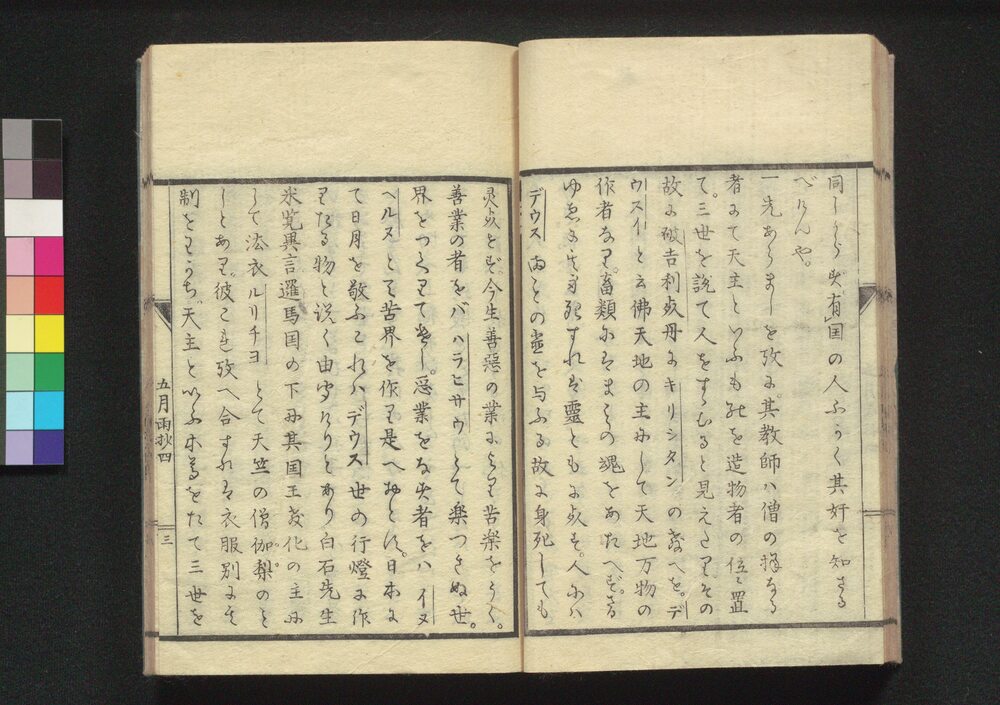 同しからす、有囯の人ふかく其奸を知さる
べけんや。
一 先あらましを攷に。其教師ハ僧の様なる
者にて天主といふものを造物者の位に置
て。三世を説て人をすゝむると見えたり。その
故に破吉利支丹にキリシタンの教へを。デ
ウスイと云佛天地の主にして天地万物の
作者なり。畜類にはまことの魂をあたへず。さる
ゆゑに其身死すれは靈ともに
人には
デウスまことの
を与ふる故に身死しても
今生善惡の業により苦楽をうく。
善業の者をバハラヒサウとて楽つきぬ世
界をつくりて
惡業をなす者をハイヌ
ヘルヌとて苦界を作り是へおとす。日本に
て日月を敬ふこれハデウス世の行燈に作
りたる物と説く由
白石先生
采覧異言邏馬国の下に其囯王教化の主に
して法衣ルリチヨとて天竺の僧伽梨のこ
しとあり。彼これ攷へ合すれは衣服別に
制をわかち。天主といふ本尊をたて三世を
五月雨抄四
三